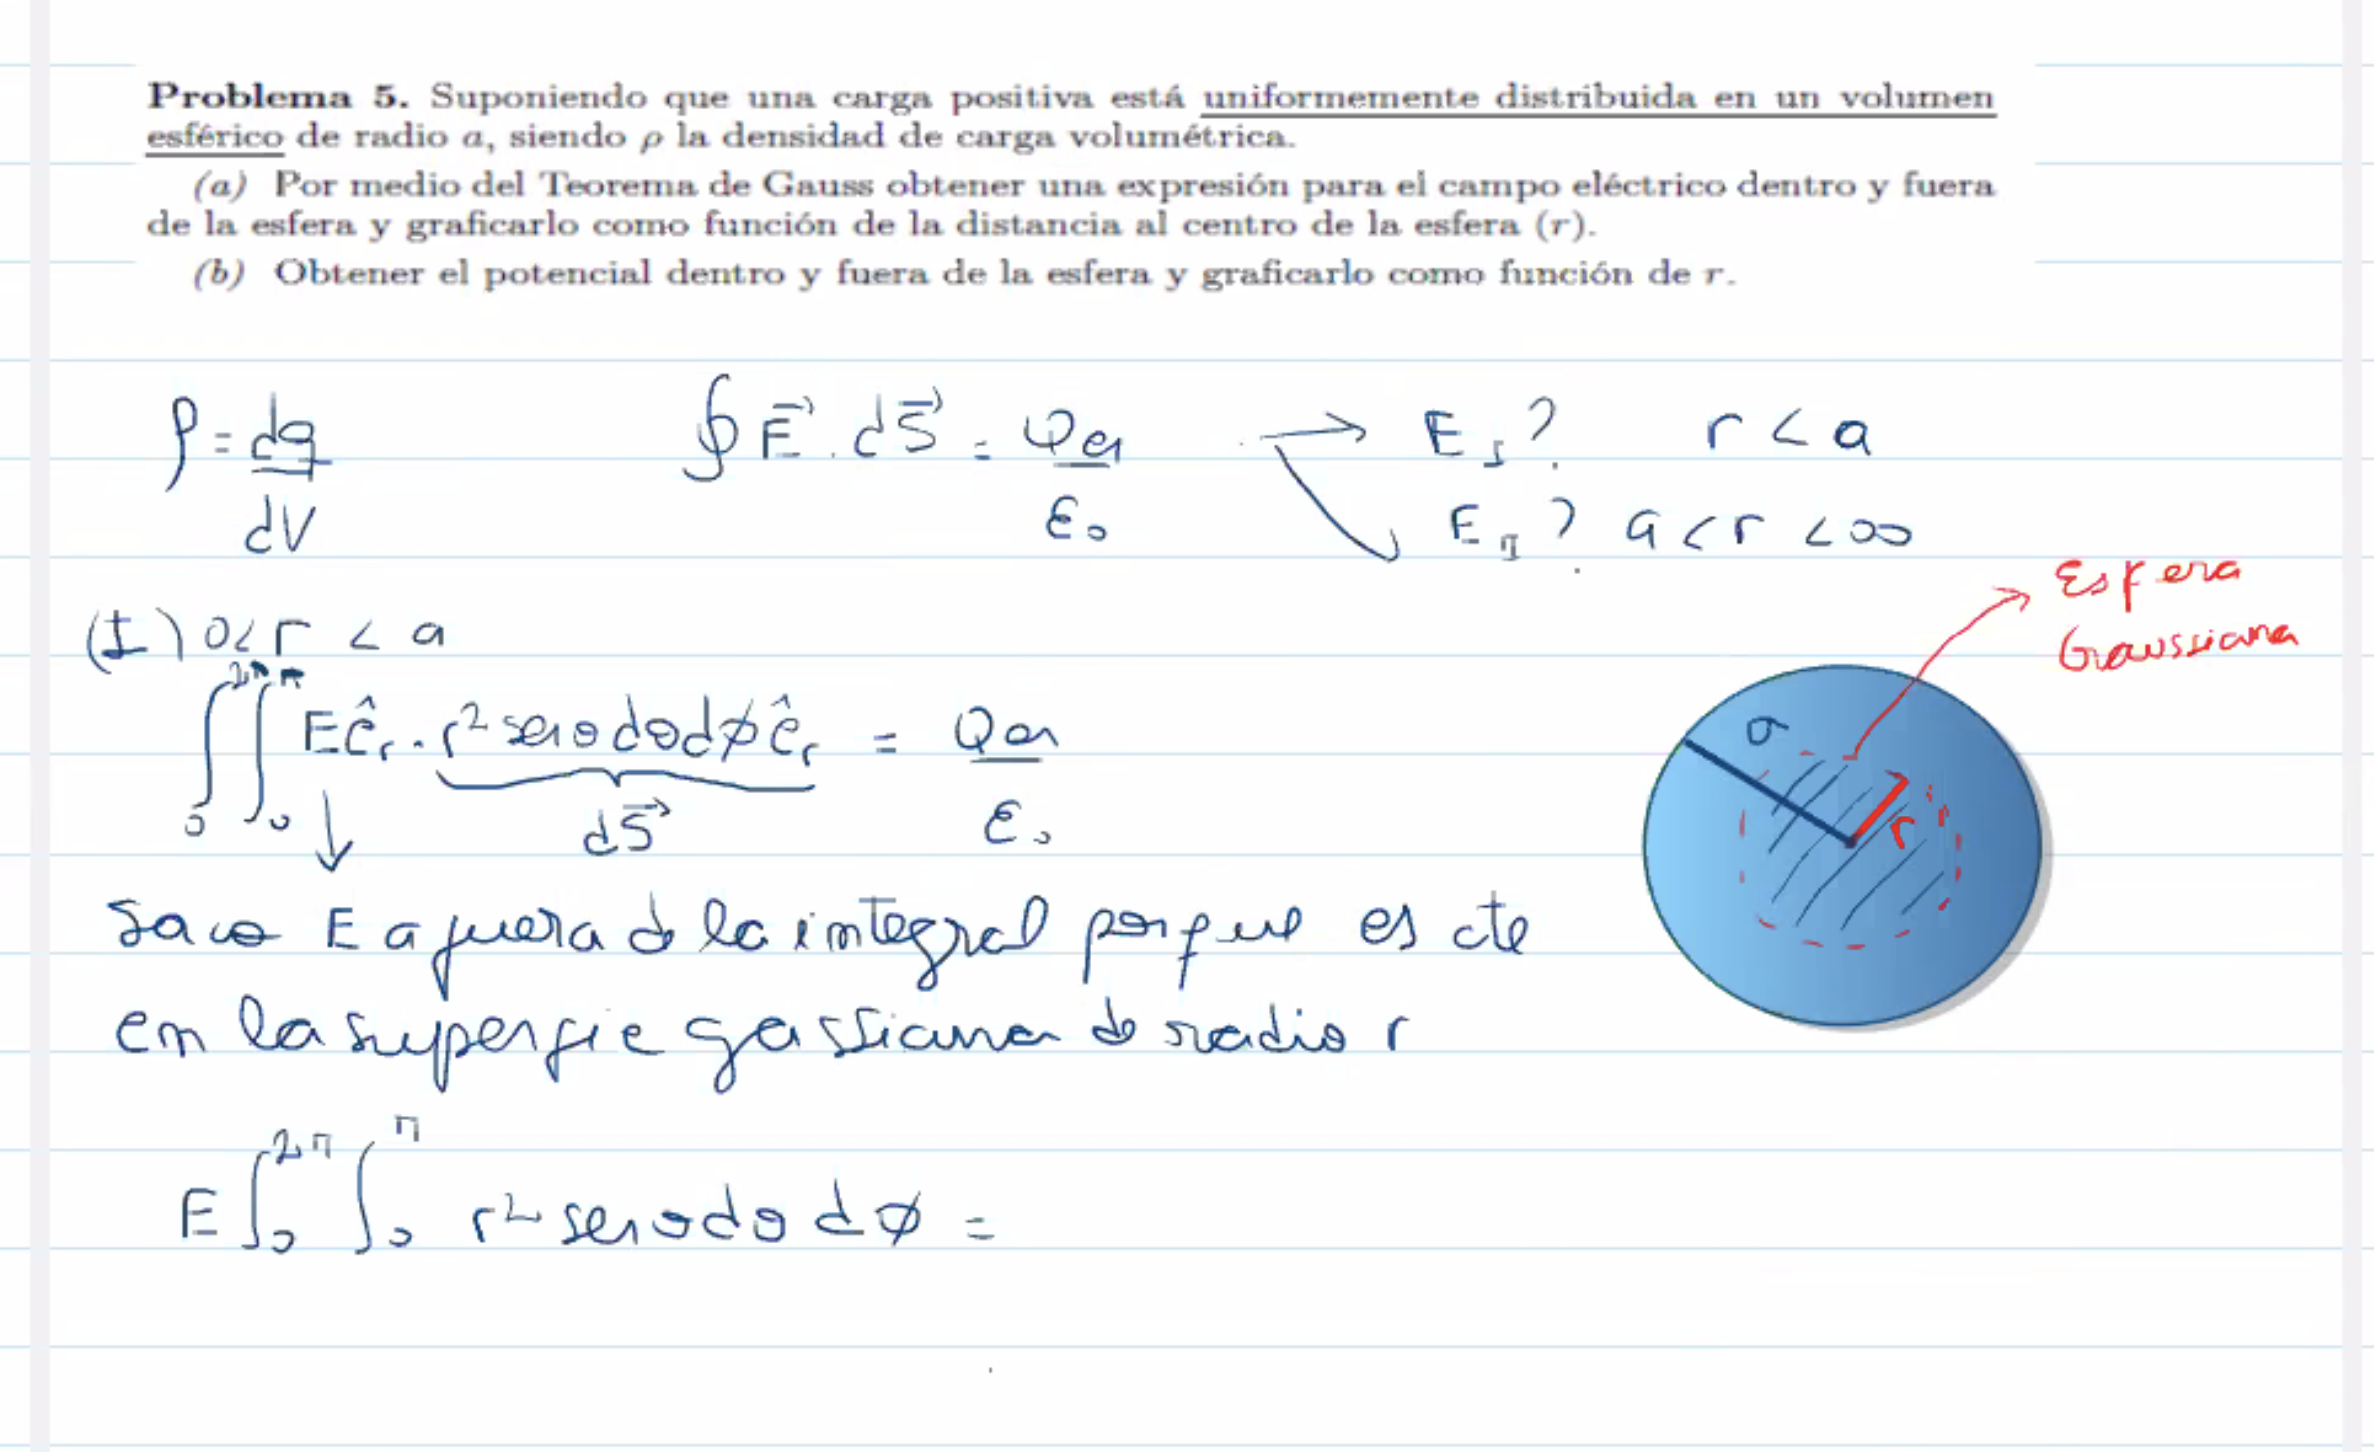 Problema 5. Suponiendo que una carga positiva está uniformemente distribuida en un volumen
esférico de radio a, siendo ρ la densidad de carga volumétrica.
(a) Por medio del Teorema de Gauss obtener una expresión para el campo eléctrico dentro y fuera
de la esfera y graficarlo como función de la distancia al centro de la esfera (r).
(b) Obtener el potencial dentro y fuera de la esfera y graficarlo como función de r.
ρ = dq/dV    ∮ E⃗ . dS⃗ = Qen/ε₀ → E_I ?    r < a
E_II ?    a < r < ∞
Esfera
Gaussiana
(I) 0 < r < a
∫₀^2π ∫₀^π E ê_r . r² senθ dθ dϕ ê_r = Qen/ε₀
dS⃗
a
r
Saco E afuera de la integral porque es cte
en la superfie gassiana de radio r
E ∫₀^2π ∫₀^π r² senθ dθ dϕ =